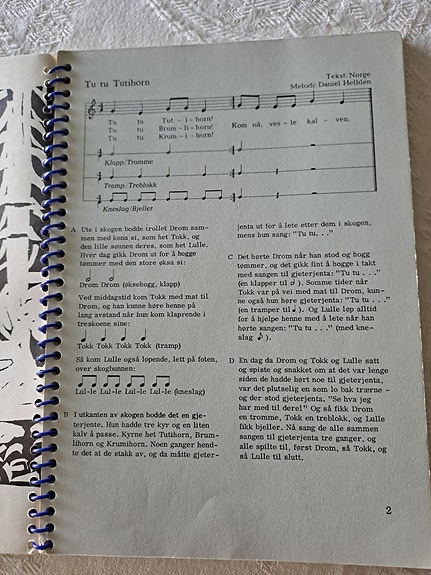 Tu tu Tutihorn
Tekst: Norge
Melodi: Daniel Helldén
Tu tu Tut - i - horn! Kom nå, ves - le kal - ven.
Tu tu Brum - li - horn!
Tu tu Krum - i - horn!
Klapp/Tromme
Tramp/Treblokk
Kneslag/Bjeller
A Ute i skogen bodde trollet Drom sam-
men med kona si, som het Tokk, og
den lille sønnen deres, som het Lulle.
Hver dag gikk Drom ut for å hogge
tømmer med den store øksa si:
Drom Drom (øksehogg, klapp)
Ved middagstid kom Tokk med mat til
Drom, og han kunne høre henne på
lang avstand når hun kom klaprende i
treskoene sine:
Tokk Tokk Tokk Tokk (tramp)
Så kom Lulle også løpende, lett på foten,
over skogbunnen:
Lul-le Lul-le Lul-le Lul-le (kneslag)
B I utkanten av skogen bodde det en gje-
terjente. Hun hadde tre kyr og en liten
kalv å passe. Kyrne het Tutihorn, Brum-
lihorn og Krumihorn. Noen ganger hend-
te det at de stakk av, og da måtte gjeter-
jenta ut for å lete etter dem i skogen,
mens hun sang: "Tu tu. . ."
C Det hørte Drom når han stod og hogg
tømmer, og det gikk fint å hogge i takt
med sangen til gjeterjenta: "Tu tu . . ."
(en klapper til ). Somme tider når
Tokk var på vei med mat til Drom, kun-
ne også hun høre gjeterjenta: "Tu tu . . ."
(en tramper til ). Og Lulle løp alltid
for å hjelpe henne med å lete når han
hørte sangen: "Tu tu. . ." (med kne-
slag ).
D En dag da Drom og Tokk og Lulle satt
og spiste og snakket om at det var lenge
siden de hadde hørt noe til gjeterjenta,
var det plutselig en som lo bak trærne -
og der stod gjeterjenta. "Se hva jeg
har med til dere!" Og så fikk Drom
en tromme, Tokk en treblokk, og Lulle
fikk bjeller. Nå sang de alle sammen
sangen til gjeterjenta tre ganger, og
alle spilte til, først Drom, så Tokk, og
så Lulle til slutt.
2